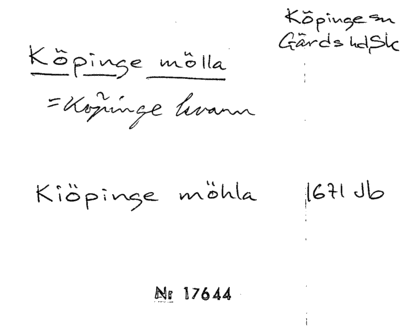 Köpinge sn
Gärds hd Sk
Köpinge mölla
= Köpinge kvarn
Kiöpinge möhla 1671 Jb
Nr 17644